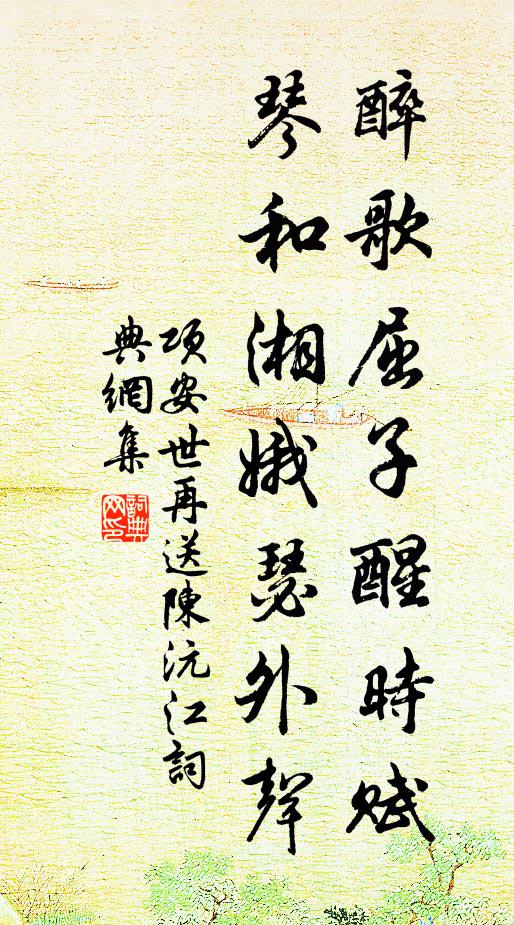 醉歌屈子醒時賦
琴和湘娥瑟外聲
項安世再送陳沅江詞
典網集
詞典
网印